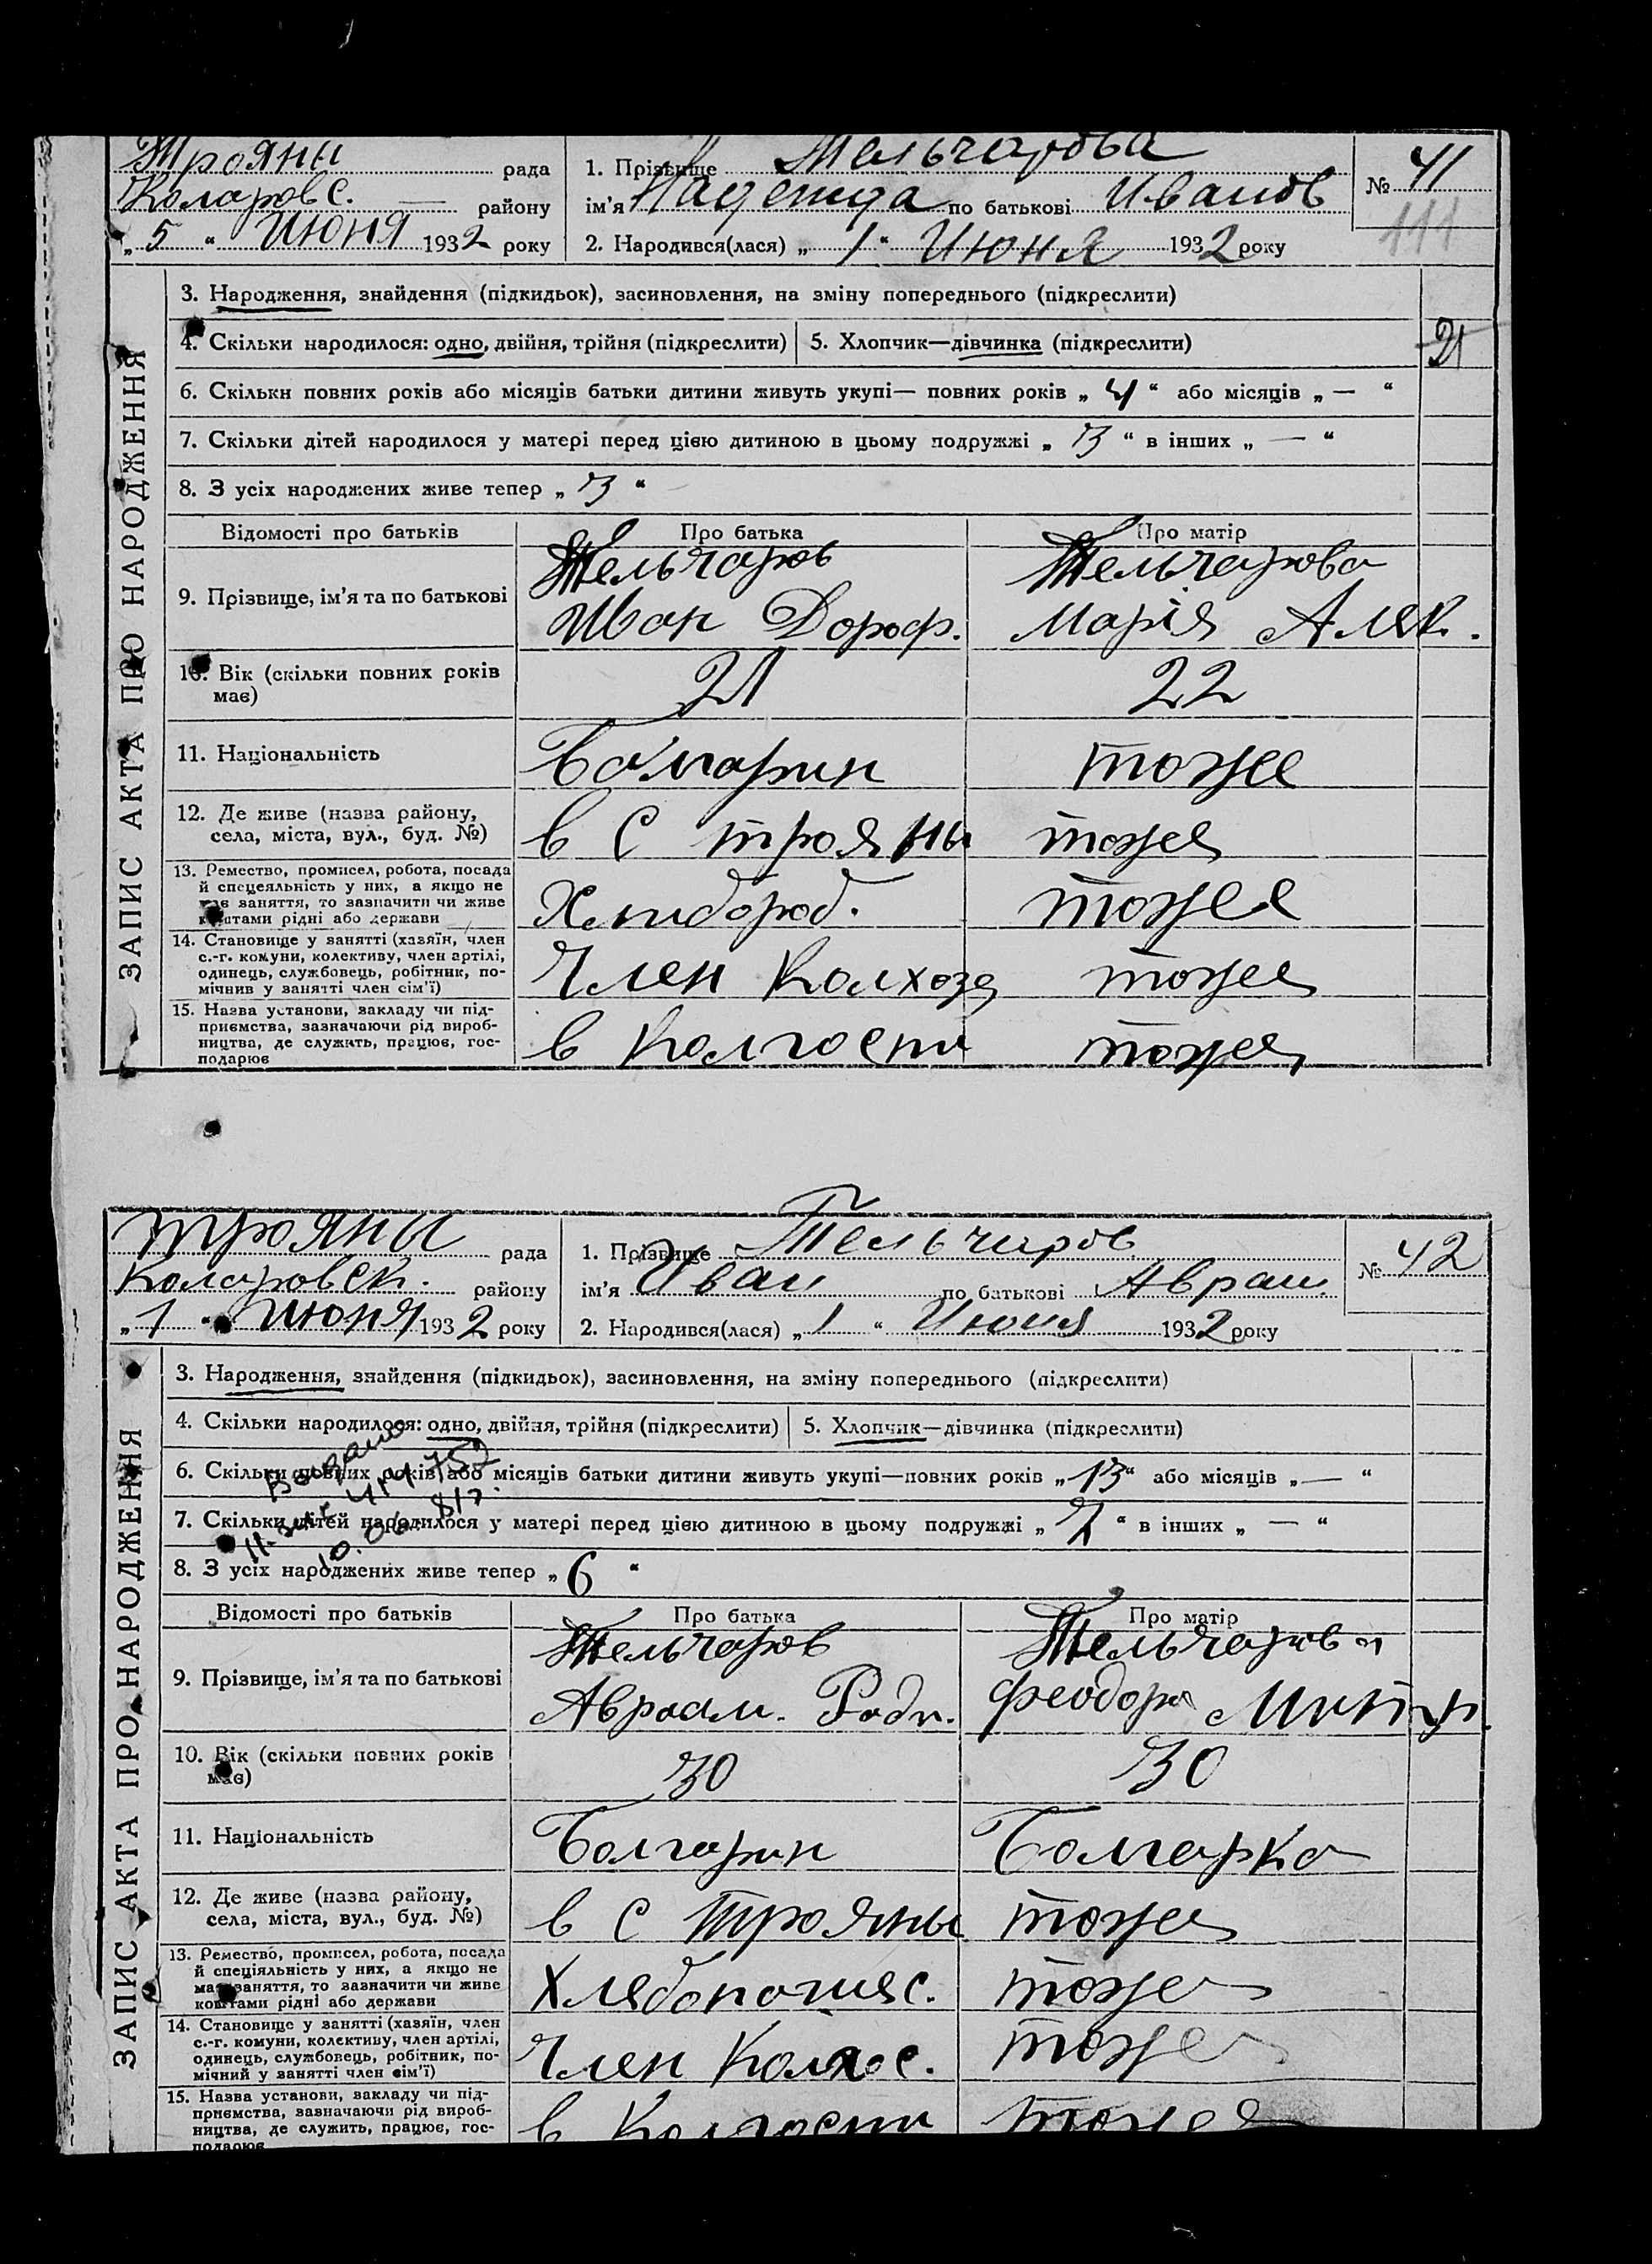 Трояны рада
Коларовс. району
„ 5 “ Июня 1932 року
1. Прізвище Тельчарова
ім’я Надежда по батькові Иванов
2. Народився(лася) „ 1 “ Июня 1932 року
№ 41
111
ЗАПИС АКТА ПРО НАРОДЖЕННЯ
3. Народження, знайдення (підкидьок), засиновлення, на зміну попереднього (підкреслити)
4. Скільки народилося: одно, двійня, трійня (підкреслити) 5. Хлопчик—дівчинка (підкреслити)
21
6. Скільки повних років або місяців батьки дитини живуть укупі— повних років „ 4 “ або місяців „ — “
7. Скільки дітей народилося у матері перед цією дитиною в цьому подружжі „ 3 “ в інших „ — “
8. З усіх народжених живе тепер „ 3 “
Відомості про батьків Про батька Про матір
9. Прізвище, ім’я та по батькові
Тельчаров Тельчарова
Иван Дороф. Марія Алек.
10. Вік (скільки повних років
має)
21 22
11. Національність Болгарин тоже
12. Де живе (назва району,
села, міста, вул., буд. №)
в с трояны тоже
13. Ремество, промисел, робота, посада
й спецеяльність у них, а якщо не
має заняття, то зазначити чи живе
коштами рідні або держави
Хлибороб. тоже
14. Становище у занятті (хазяїн, член
с.-г. комуни, колективу, член артілі,
одинець, службовець, робітник, по-
мічнив у занятті член сім’ї)
Член Колхоза тоже
15. Назва установи, закладу чи під-
приємства, зазначаючи рід вироб-
ництва, де служить, працює, гос-
подарює
в Колгоспи тоже
трояны рада
Коларовск. району
„ 1 “ Июня 1932 року
1. Прізвище Тельчаров
ім’я Иван по батькові Аврам.
2. Народився(лася) „ 1 “ Июня 1932 року
№ 42
ЗАПИС АКТА ПРО НАРОДЖЕННЯ
3. Народження, знайдення (підкидьок), засиновлення, на зміну попереднього (підкреслити)
4. Скільки народилося: одно, двійня, трійня (підкреслити) 5. Хлопчик—дівчинка (підкреслити)
6. Скільки повних років або місяців батьки дитини живуть укупі—повних років „ 13 “ або місяців „ — “
7. Скільки дітей народилося у матері перед цією дитиною в цьому подружжі „ 7 “ в інших „ — “
8. З усіх народжених живе тепер „ 6 “
Выдано
414752
10.06.81г.
Відомості про батьків Про батька Про матір
9. Прізвище, ім’я та по батькові
Тельчаров Тельчарова
Авраам. Феодора
10. Вік (скільки повних років
має)
30 30
11. Національність Болгарин Болгарка
12. Де живе (назва району,
села, міста, вул., буд. №)
в с трояны тоже
13. Ремество, промисел, робота, посада
й спеціяльність у них, а якщо не
має заняття, то зазначити чи живе
коштами рідні або держави
Хлебопашес. тоже
14. Становище у занятті (хазяїн, член
с.-г. комуни, колективу, член артілі,
одинець, службовець, робітник, по-
мічний у занятті член сім’ї)
Член Колхос. тоже
15. Назва установи, закладу чи під-
приємства, зазначаючи рід вироб-
ництва, де служить, працює, гос-
подарює
в Колгоспи тоже